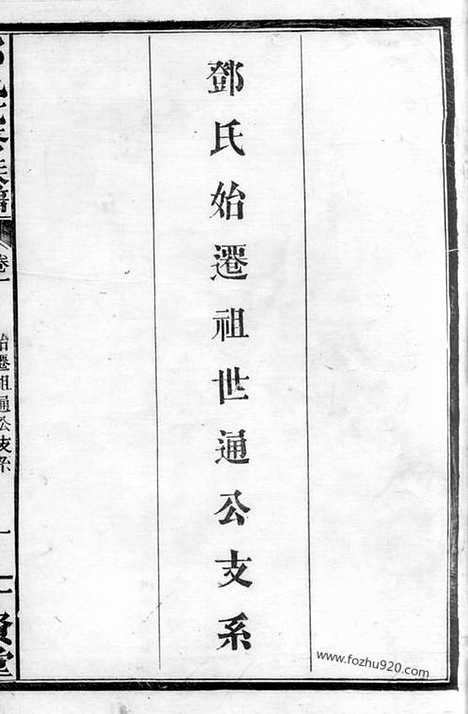 鄧氏始遷祖世通公支系
卷一
始遷祖通公支系
一
賢堂
www.fozhu920.com